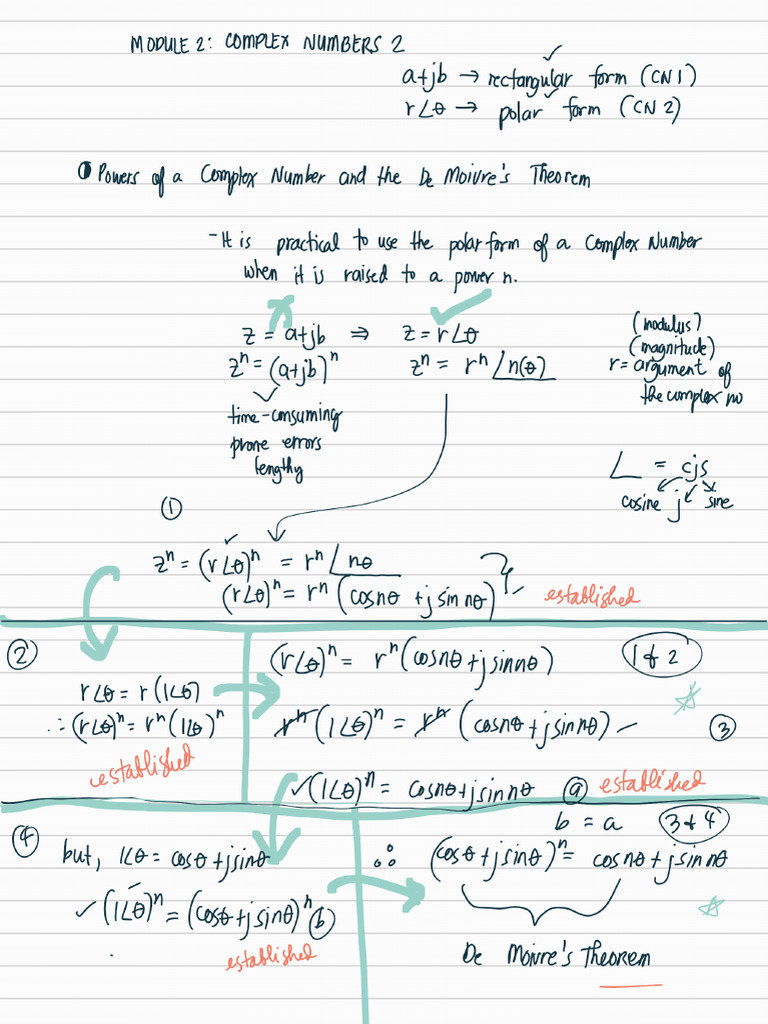 MODULE 2: COMPLEX NUMBERS 2
a+jb → rectangular form (CN1)
r∠θ → polar form (CN2)
Powers of a Complex Number and the De Moivre's Theorem
- It is practical to use the polar form of a Complex Number
when it is raised to a power n.
z = a+jb ⇒ z = r∠θ
zⁿ = (a+jb)ⁿ zⁿ = rⁿ∠n(θ)
(modulus)
(magnitude)
r = argument of
the complex no
time-consuming
prone errors
lengthy
∠ = cjs
cosine j sine
①
zⁿ = (r∠θ)ⁿ = rⁿ∠nθ
(r∠θ)ⁿ = rⁿ(cosnθ + j sin nθ) established
②
r∠θ = r(1∠θ)
∴ (r∠θ)ⁿ = rⁿ(1∠θ)ⁿ
established
(r∠θ)ⁿ = rⁿ(cosnθ + j sinnθ) 1 & 2
rⁿ(1∠θ)ⁿ = rⁿ(cosnθ + j sinnθ) ③
(1∠θ)ⁿ = cosnθ + j sinnθ ⓐ established
④
but, 1∠θ = cosθ + j sinθ
(1∠θ)ⁿ = (cosθ + j sinθ)ⁿ ⓑ
established
b = a 3 & 4
∴ (cosθ + j sinθ)ⁿ = cosnθ + j sin nθ
De Moivre's Theorem